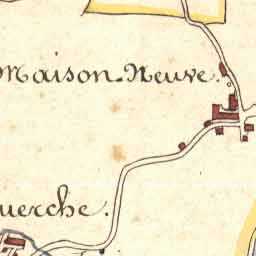 Maison-Neuve.
uerche.